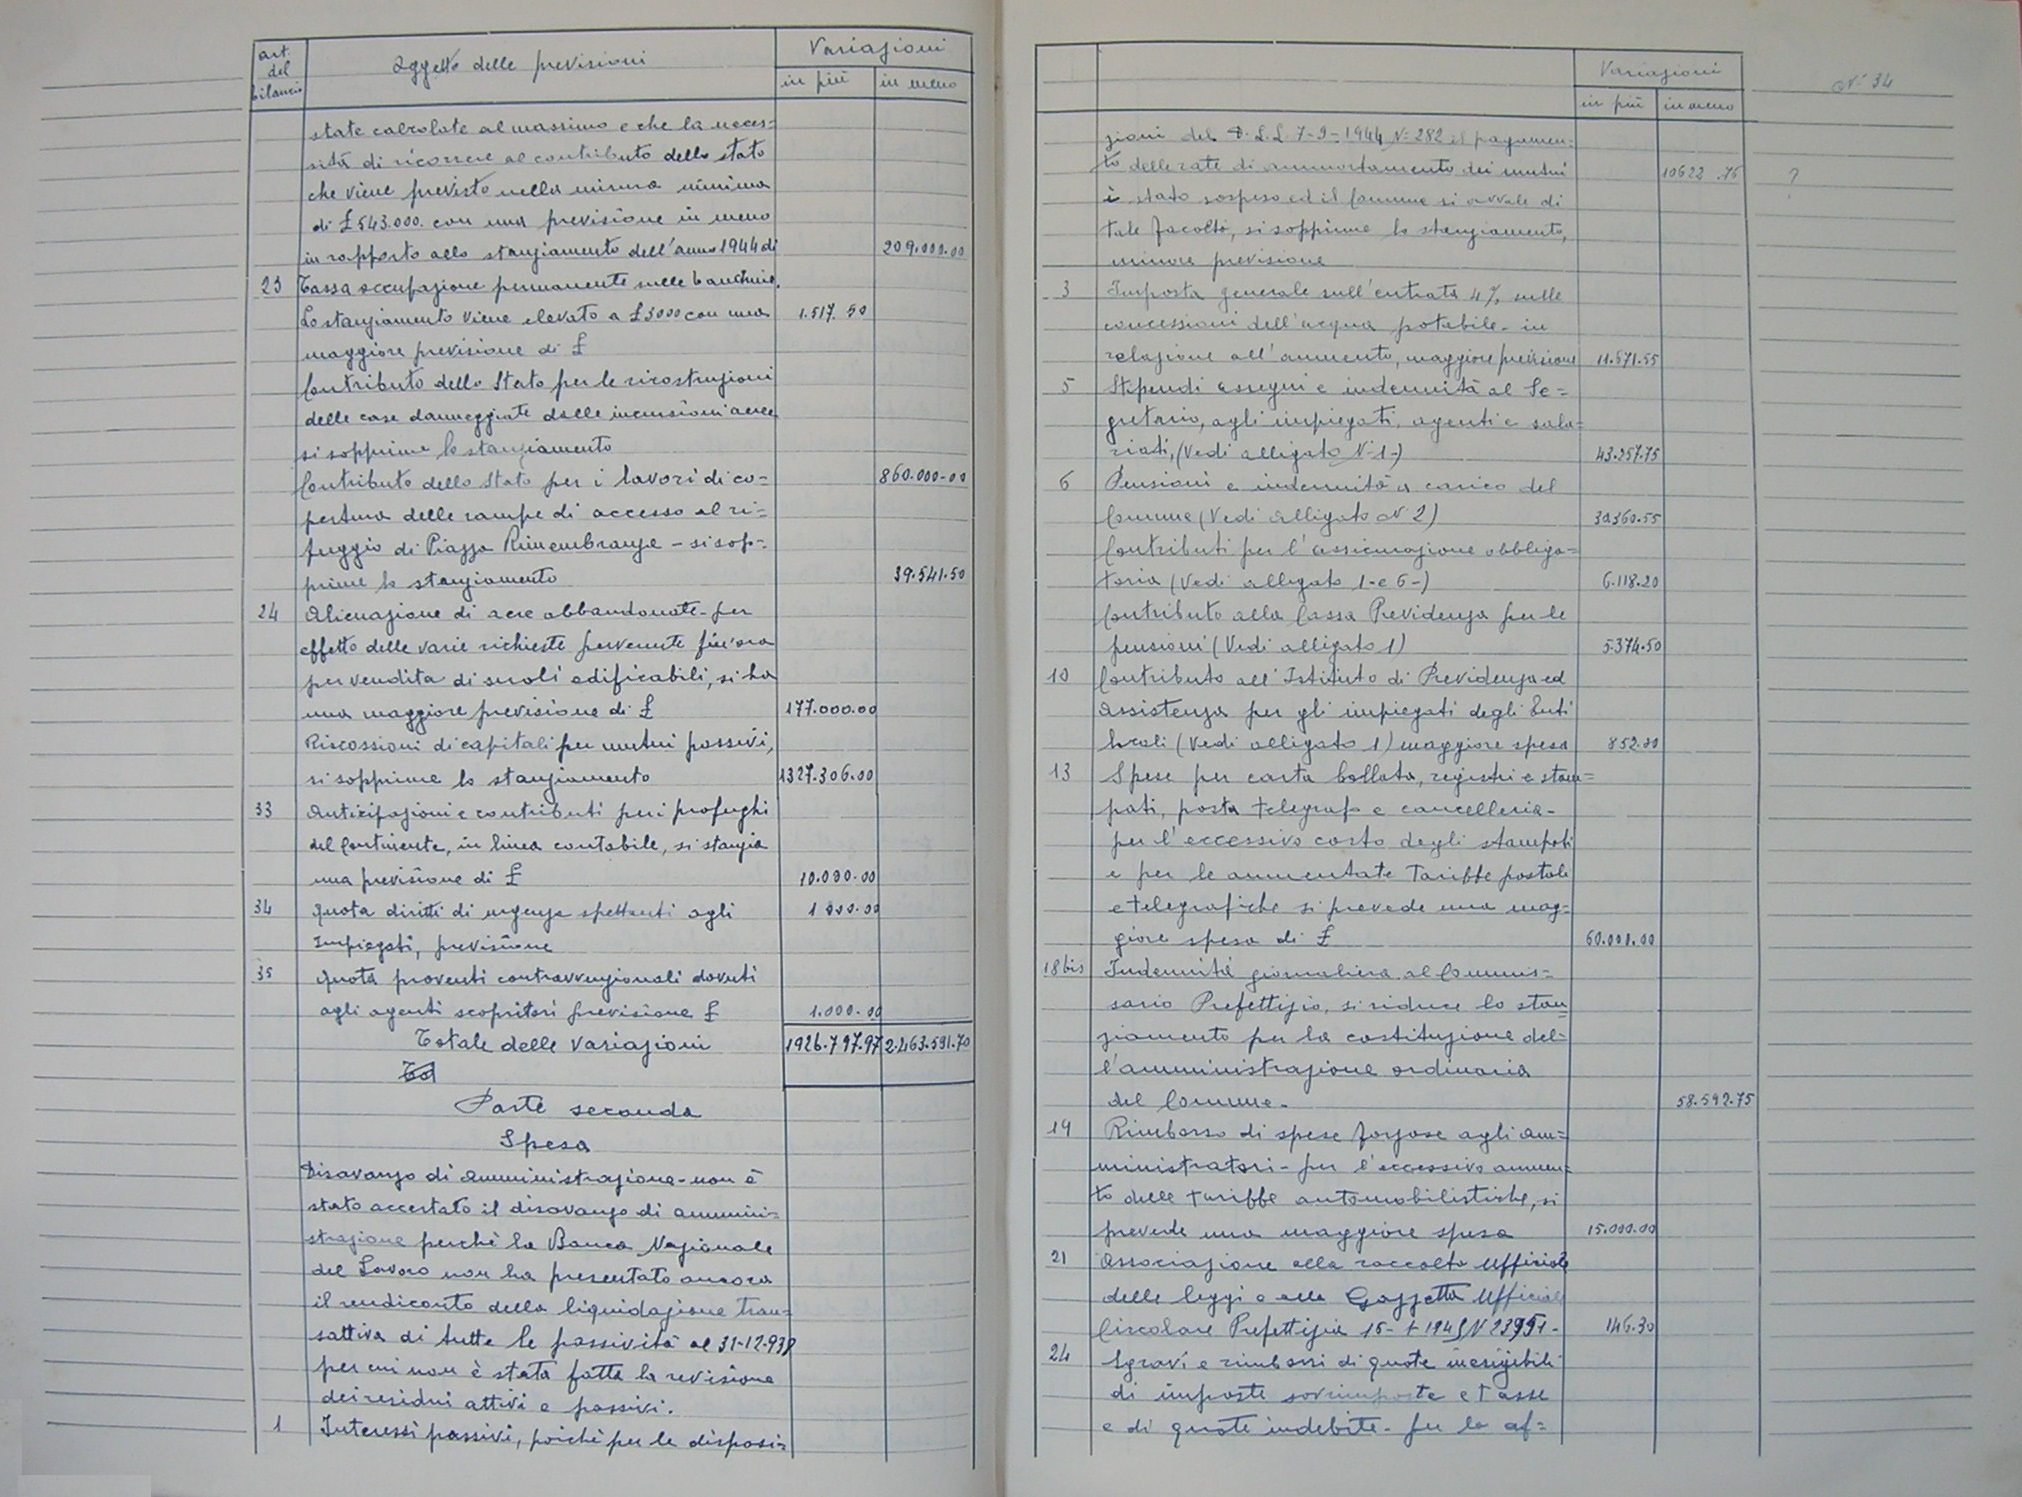 art. del bilancio
Oggetto delle previsioni
Variazioni
in più
in meno
state calcolate al massimo e che la neces=
sità di ricorrere al contributo dello stato
che viene previsto nella misura minima
di £ 543.000. con una previsione in meno
in rapporto allo stanziamento dell'anno 1944 di 209.000.00
23 Tassa occupazione permanente sulle banchine.
Lo stanziamento viene elevato a £ 3000 con una 1.517. 50
maggiore previsione di £
Contributo dello Stato per le ricostruzioni
delle case danneggiate dalle incursioni aeree
si sopprime lo stanziamento
Contributo dello Stato per i lavori di co= 860.000-00
pertura delle rampe di accesso al ri=
fuggio di Piazza Rimembranze - si sop=
prime lo stanziamento 39.541.50
24 Alienazione di aree abbandonate - per
effetto delle varie richieste pervenute fin'ora
per vendita di suoli edificabili, si ha
una maggiore previsione di £ 177.000.00
Riscossioni di capitali per mutui passivi,
si sopprime lo stanziamento 1327.306.00
33 Anticipazioni e contributi per i profughi
del Continente, in linea contabile, si stanzia
una previsione di £ 10.000.00
34 Quota diritti di urgenza spettanti agli 1 000.00
Impiegati, previsione
35 Quota proventi contravvenzionali dovuti
agli agenti scopritori previsione £ 1.000.00
Totale delle variazioni 1926.797.97 2.463.591.70
Parte seconda
Spesa
Disavanzo di amministrazione - non è
stato accertato il disavanzo di ammini=
strazione perchè la Banca Nazionale
del Lavoro non ha presentato ancora
il rendiconto della liquidazione tran=
sattiva di tutte le passività al 31-12-938
per cui non è stata fatta la revisione
dei residui attivi e passivi.
1 Interessi passivi, poichè per le disposi=
Variazioni
in più
in meno
N° 34
zioni del D.L.L 7-9-1944 N=282 il pagamen=
to delle rate di ammortamento dei mutui 10622.76 ?
è stato sospeso ed il Comune si avvale di
tale facoltà, si sopprime lo stanziamento,
minore previsione
3 Imposta generale sull'entrata 4% sulle
concessioni dell'acqua potabile - in
relazione all'aumento, maggiore previsione 11.571.55
5 Stipendi assegni e indennità al Se=
gretario, agli impiegati, agenti e sala=
riati, (Vedi alligato N-1-) 43.257.75
6 Pensioni e indennità a carico del
Comune (Vedi alligato N 2) 30360.55
Contributi per l'assicurazione obbliga=
toria (Vedi alligato 1-e 6-) 6.118.20
Contributo alla Cassa Previdenza per le
pensioni (Vedi alligato 1) 5.374.50
10 Contributo all'Istituto di Previdenza ed
Assistenza per gli impiegati degli Enti
locali (Vedi alligato 1) maggiore spesa 852.00
13 Spese per carta bollata, registri e stam=
pati, posta telegrafo e cancelleria -
per l'eccessivo costo degli stampati
e per le aumentate tariffe postali
e telegrafiche si prevede una mag=
giore spesa di £ 60.000.00
18 bis Indennità giornaliera al Commis=
sario Prefettizio, si riduce lo stan=
ziamento per la costituzione del=
l'amministrazione ordinaria
del Comune - 58.592.75
19 Rimborso di spese forzose agli am=
ministratori - per l'eccessivo aumen=
to delle tariffe automobilistiche, si
prevede una maggiore spesa 15.000.00
21 Associazione alla raccolta ufficiale
delle leggi e alla Gazzetta Ufficiale
Circolare Prefettizia 146.30
24 Sgravi e rimborsi di quote inesigibili
di imposte sovrimposte e tasse
e di quote indebite - per lo af=